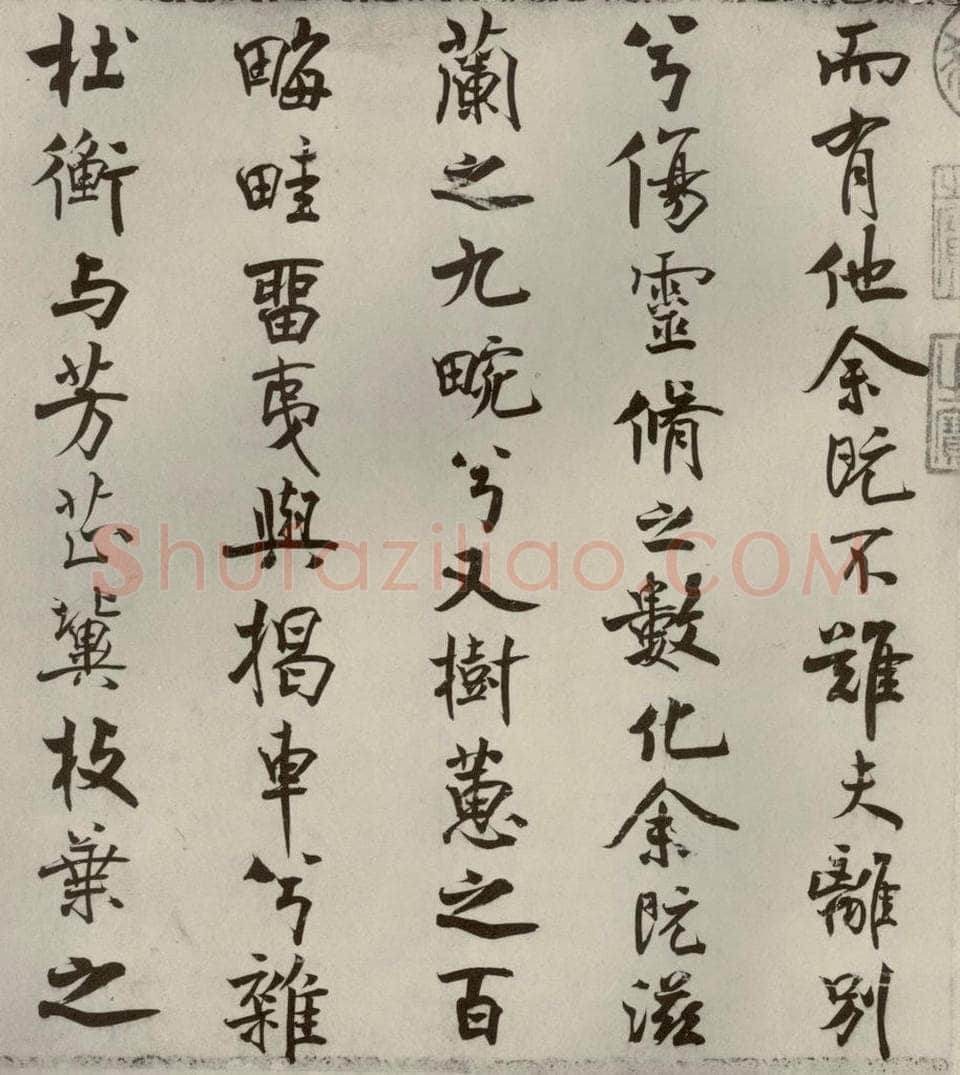 而有他余既不難夫離別
兮傷靈脩之數化余既滋
蘭之九畹兮又樹蕙之百
畮畦畱夷與揭車兮雜
杜衡与芳芷冀枝葉之
Shufaziliao.COM